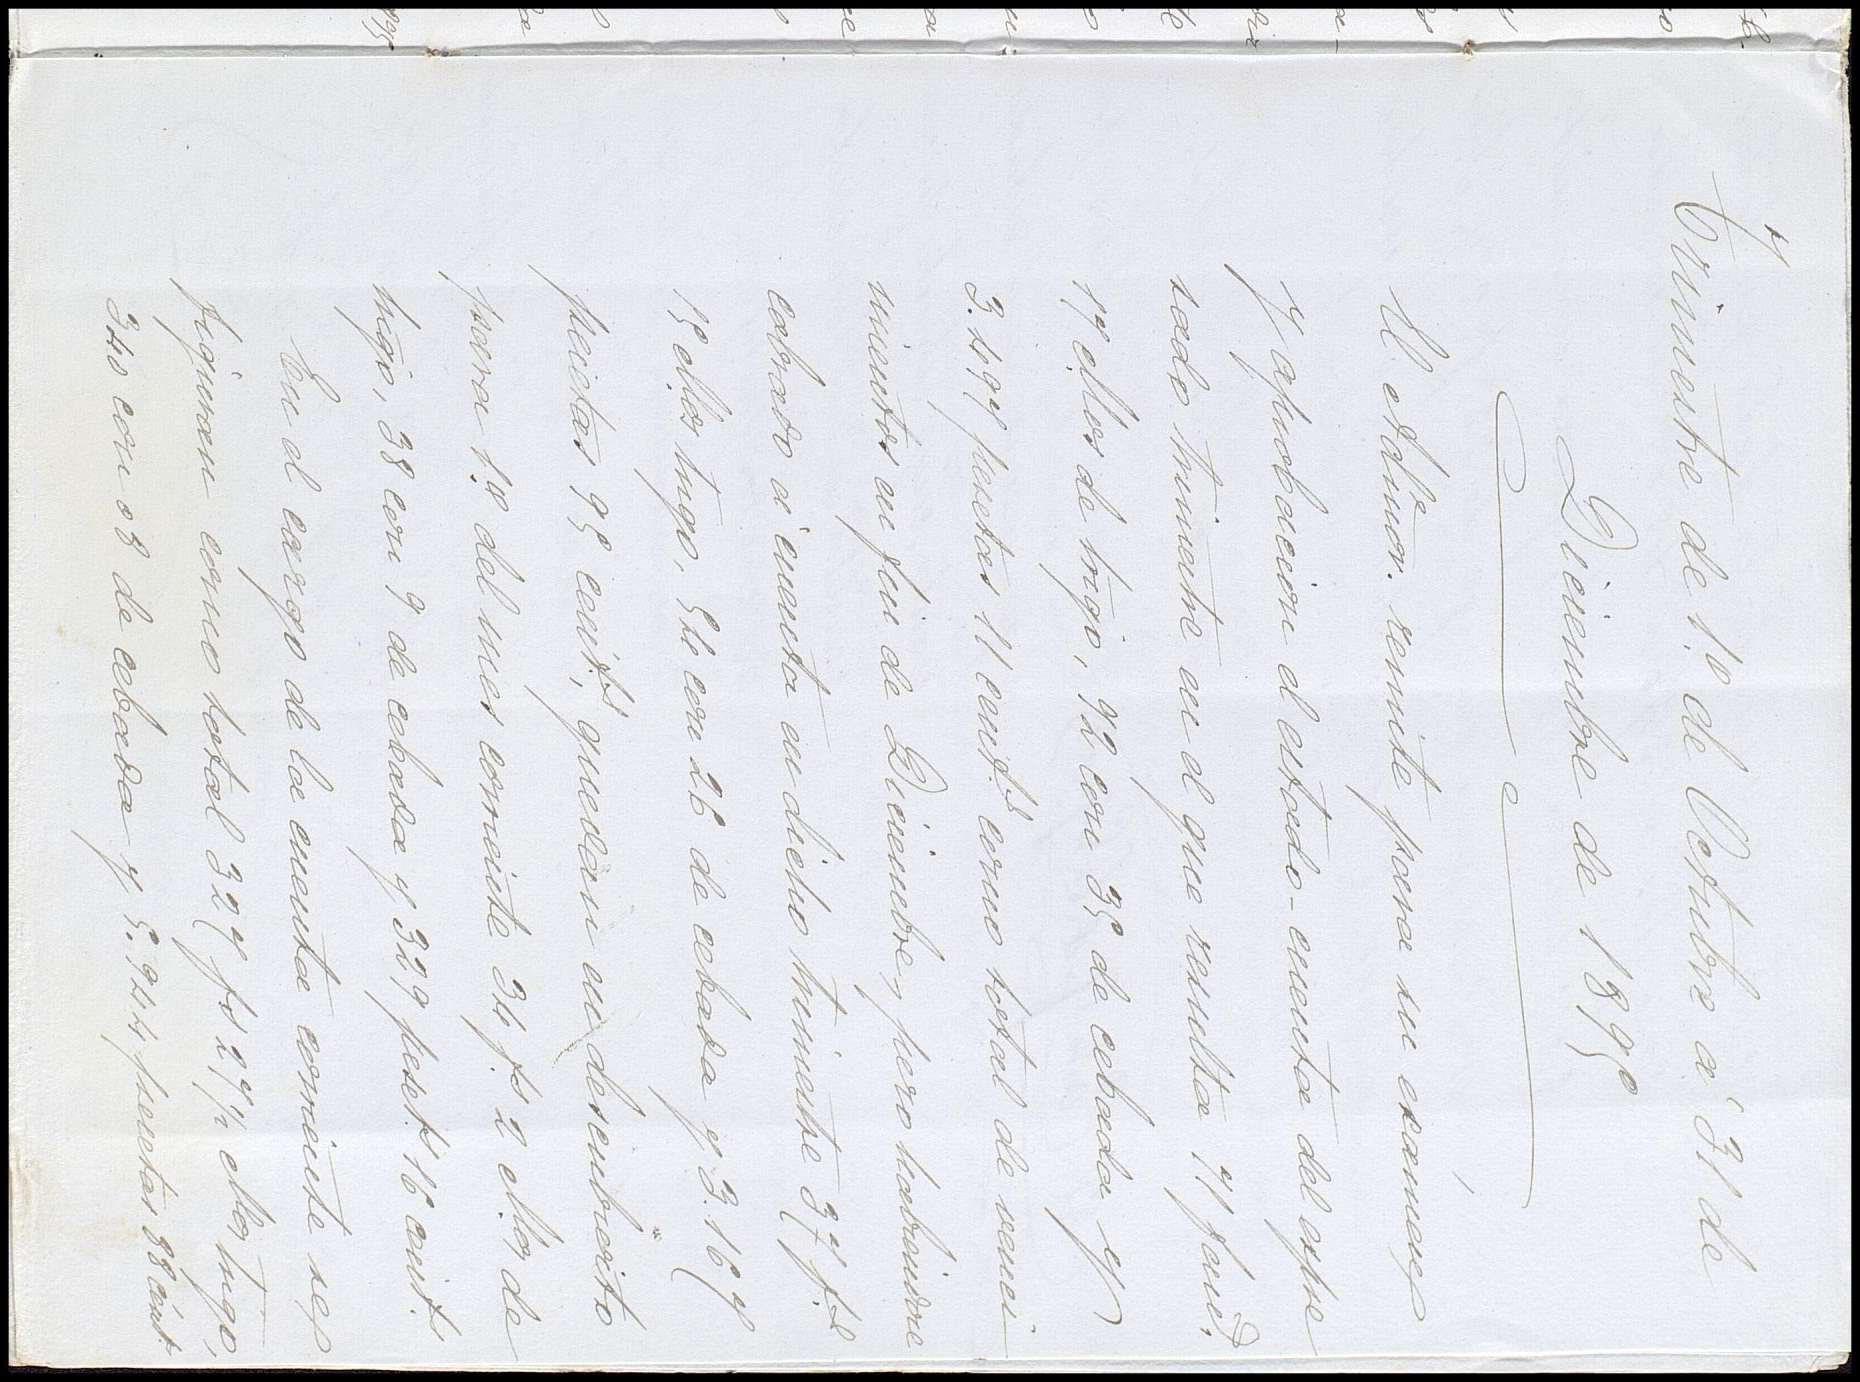 Trimestre de 1.º de Octubre á 31 de
Diciembre de 1895
El Admor. remite para su examen
y aprobacion el estado-cuenta del expre
sado trimestre en el que resulta 71 fand.
17 cllos de trigo, 92 con 35 de cebada y
3.497 pesetas 11 cent.s como total de venci
mientos en fin de Diciembre, pero habiendose
cobrado á cuenta en dicho trimestre 37 f.s
15 cllos trigo, 54 con 26 de cebada y 3.167
pesetas 95 cent.s, quedan en descubierto
para 1.º del mes corriente 34 f.s 2 cllos de
trigo, 38 con 9 de cebada y 329 peset.s 16 cent.s
En el cargo de la cuenta corriente se
figuran como total 327 f.s 27 1/2 cllos trigo,
340 con 08 de cebada y 5.944 pesetas 88 cent.